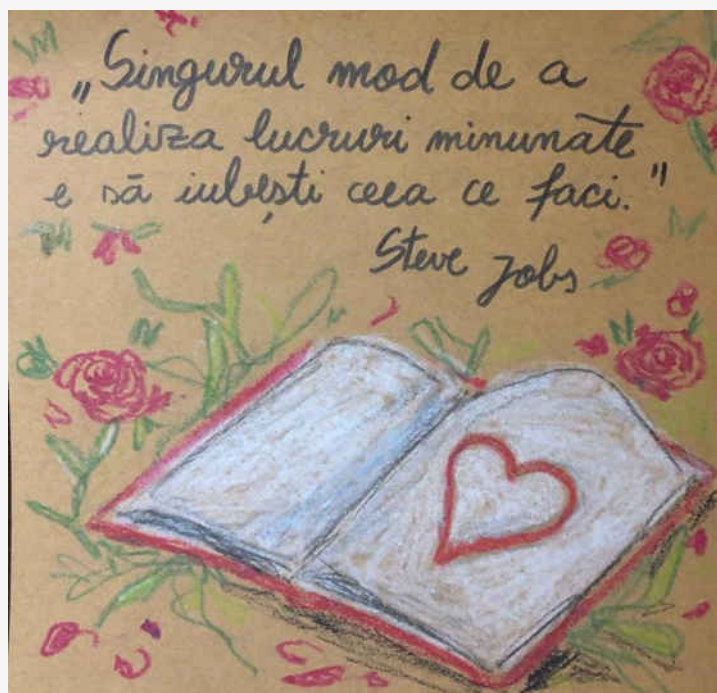 „Singurul mod de a
realiza lucruri minunate
e să iubești ceea ce faci.”
Steve Jobs